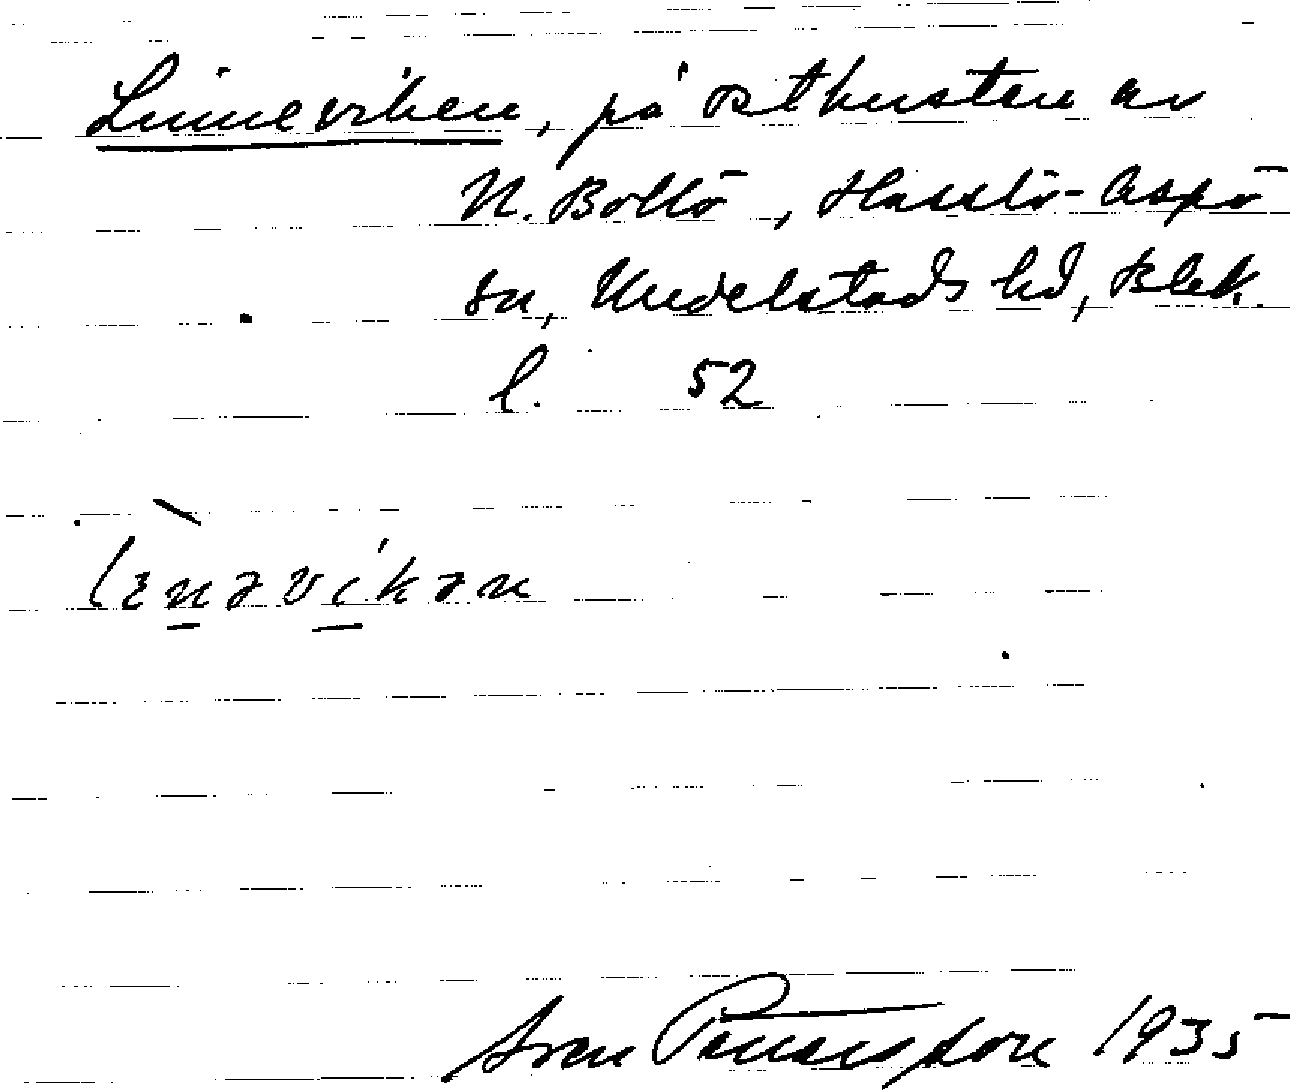 Linneviken, på ostkusten av
N. Bollö, Hasslö-Aspö
sn, Medelstads hd, Blek.
l. 52
lɛnəvikən
Sven 1935